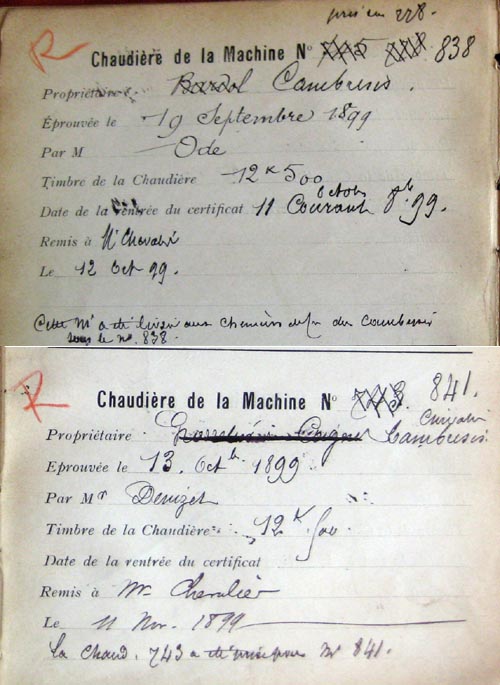 pris en 228.
R
Chaudière de la Machine N° 838
Propriétaire Cambresis.
Éprouvée le 19 Septembre 1899
Par M Ode
Timbre de la Chaudière 12 K 500
Octobre
Date de la rentrée du certificat 11 Courant 8bre 99.
Remis à Mr Chevalier
Le 12 Oct 99.
Cette Mne a été livrée aux Chemins de fer du Cambresis
sous le no 838.
R
Chaudière de la Machine N° 743 841.
Propriétaire Cambresis
Eprouvée le 13. Octbre 1899
Par Mr Denizet
Timbre de la Chaudière 12 K 500
Date de la rentrée du certificat
Remis à Mr Chevalier
Le 11 Nov. 1899
La Chaud. 743 a été prise pour Mne 841.